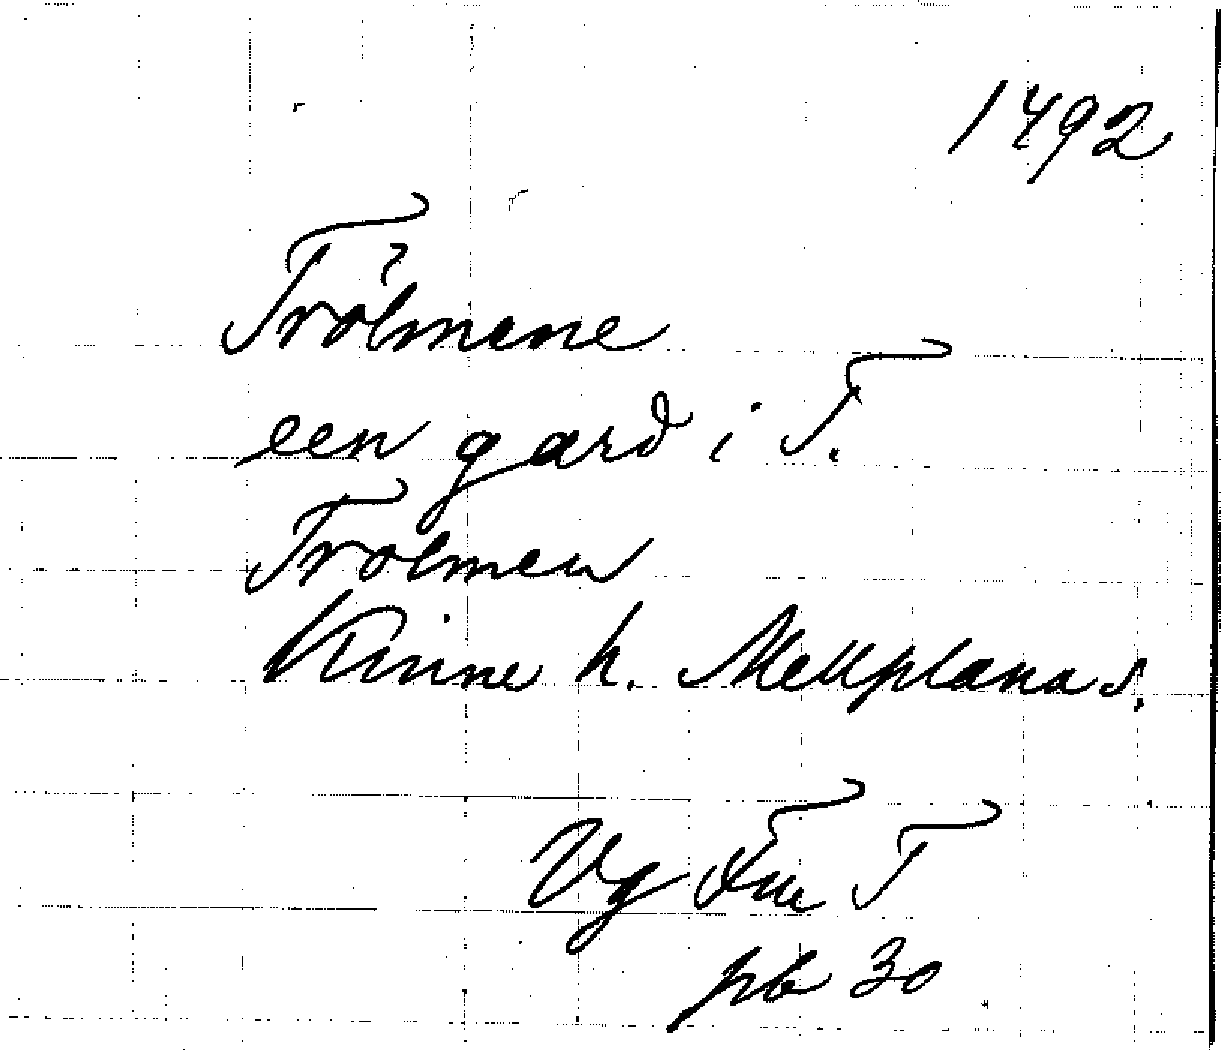 1492
Trólmene
een gard i T.
Trolmen
Kinne h. Mellplana s.
Vg Fru T
pb 30